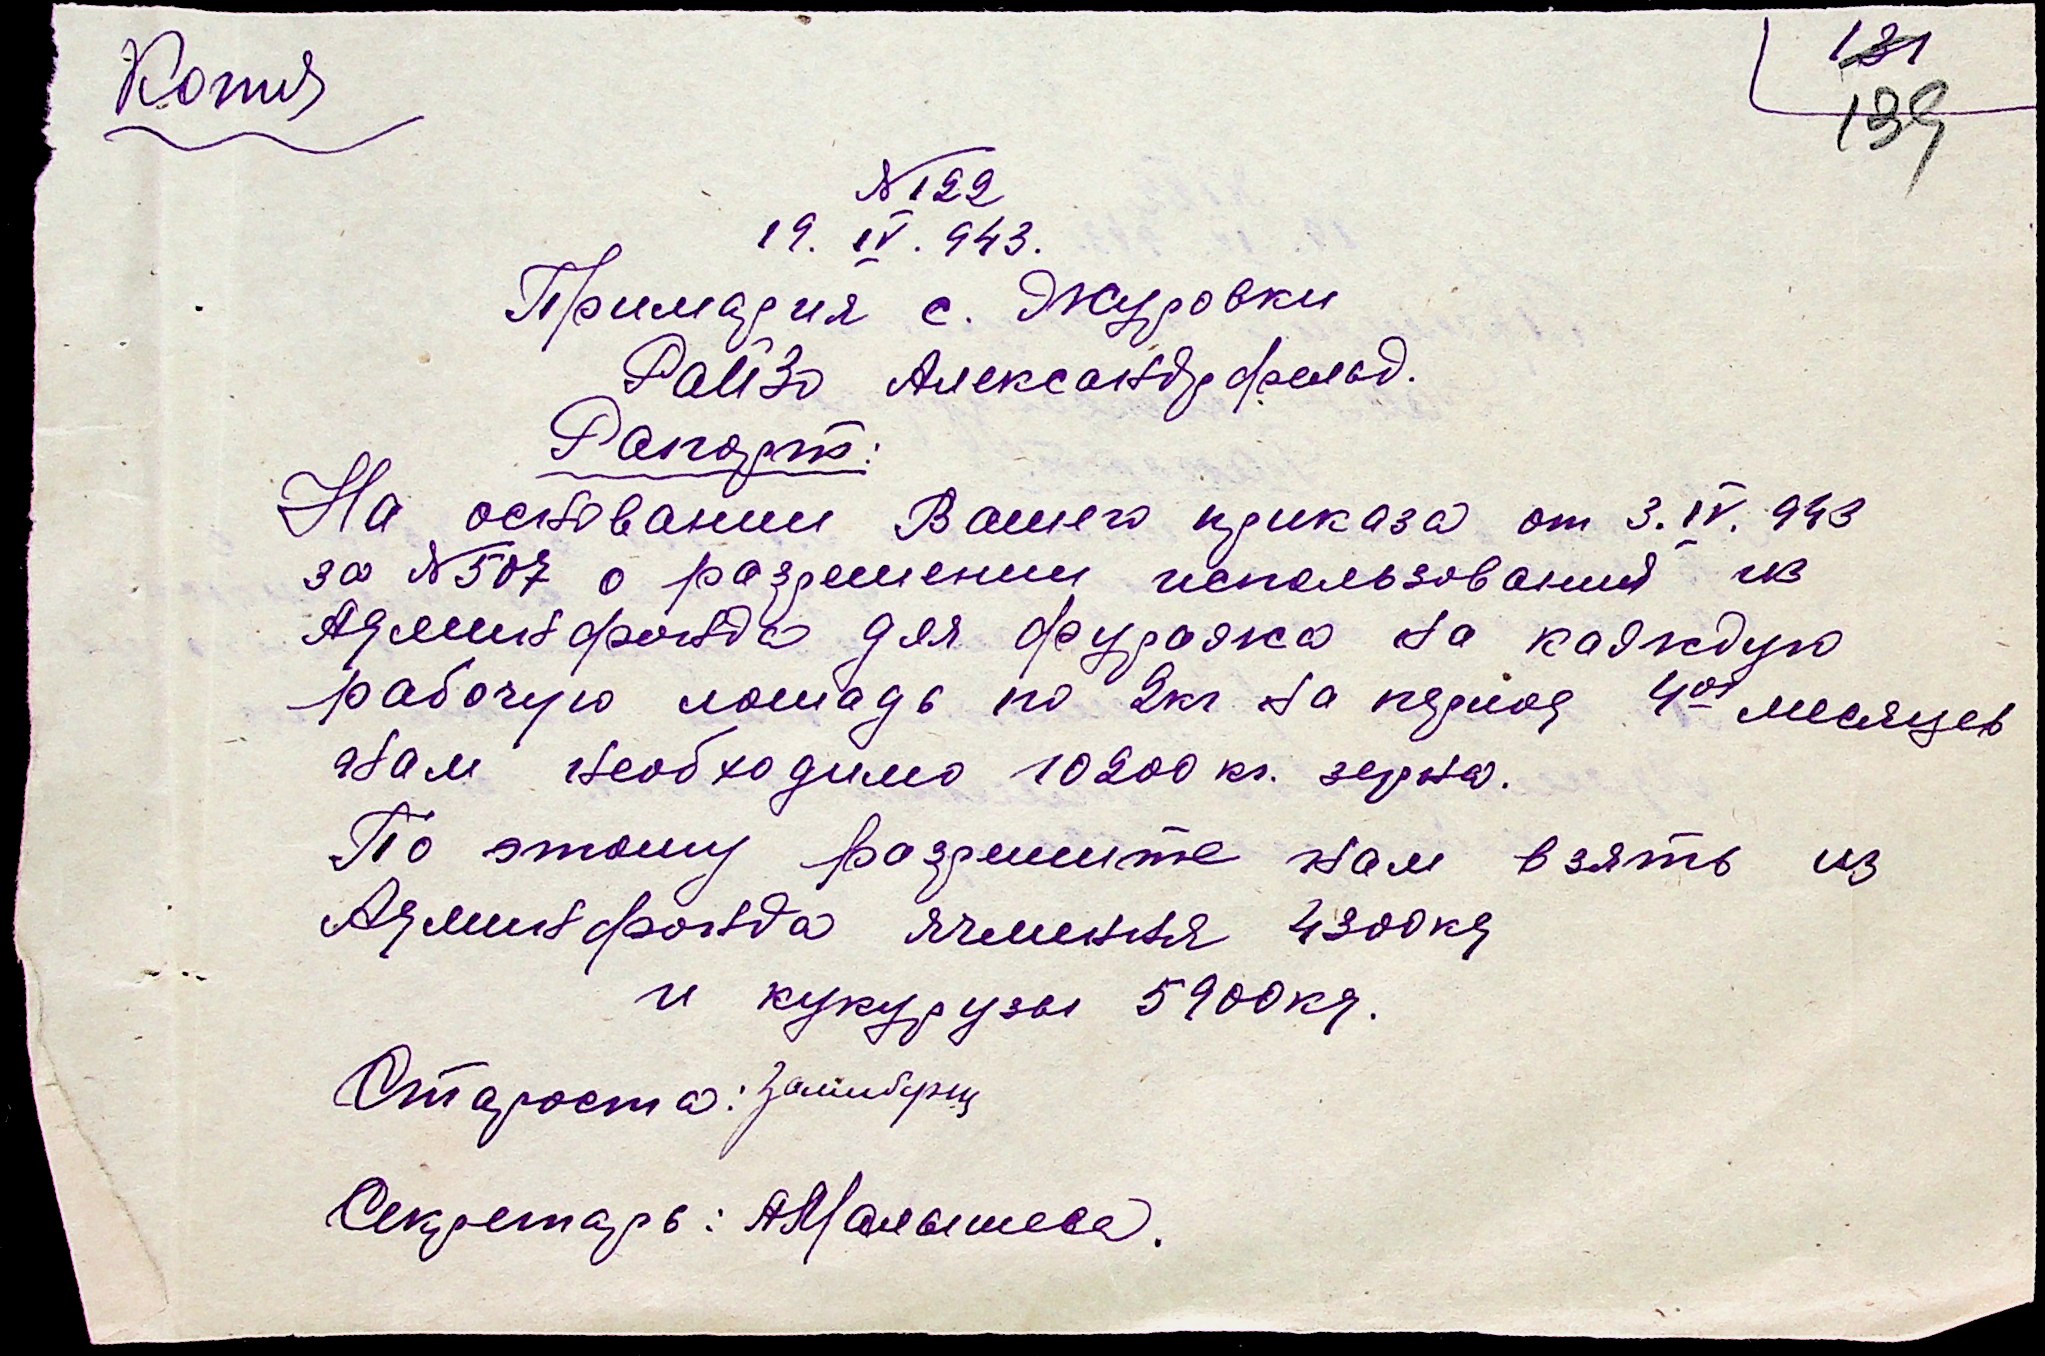 Копия
131
139
№122
19. IV. 943.
Примария с. Журовки
Райзо Александрфельд.
Рапорт:
На основании Вашего приказа от 3. IV. 943
за №507 о разрешении использования из
Админфонда для фуража на каждую
рабочую лошадь по 2кг на период 4ох месяцев
нам необходимо 10200 кг. зерна.
По этому разрешите нам взять из
Админфонда ячмення 4300кг
и кукурузы 5900кг.
Староста:
Секретарь: АМалышева.